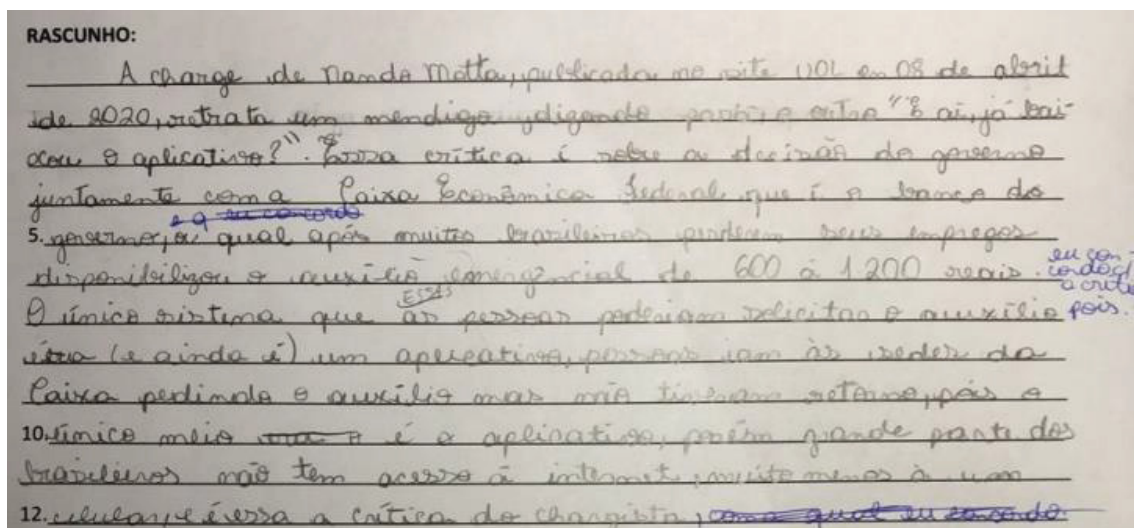 RASCUNHO:
A charge de Nando Motta, publicada no site UOL em 08 de abril
de 2020, retrata um mendigo dizendo para o outro "E aí, já bai-
xou o aplicativo?". Essa crítica é sobre a decisão do governo
juntamente com a Caixa Econômica Federal que é o banco do
e a eu concordo
5. governo, o qual após muitos brasileiros perderem seus empregos
disponibilizou o auxílio emergencial de 600 à 1.200 reais. eu con-
cordo c/
a crítica
Essas
O único sistema que as pessoas poderiam solicitar o auxílio pois.
era (e ainda é) um aplicativo, pessoas iam às sedes da
Caixa pedindo o auxílio mas não tiveram retorno, pois o
10. único meio é o aplicativo, porém grande parte dos
brasileiros não tem acesso à internet, muito menos à um
12. celular, e é essa a crítica do chargista, com a qual eu concordo.